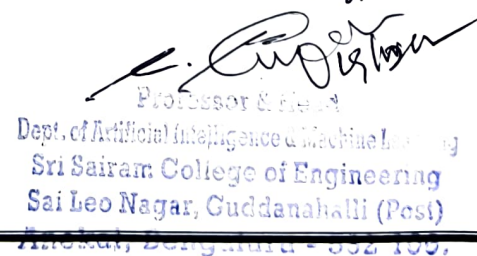 Professor & Head
Dept. of Artificial Intelligence & Machine Learning
Sri Sairam College of Engineering
Sai Leo Nagar, Guddanahalli (Post)
Anekal, Bengaluru - 562 106.